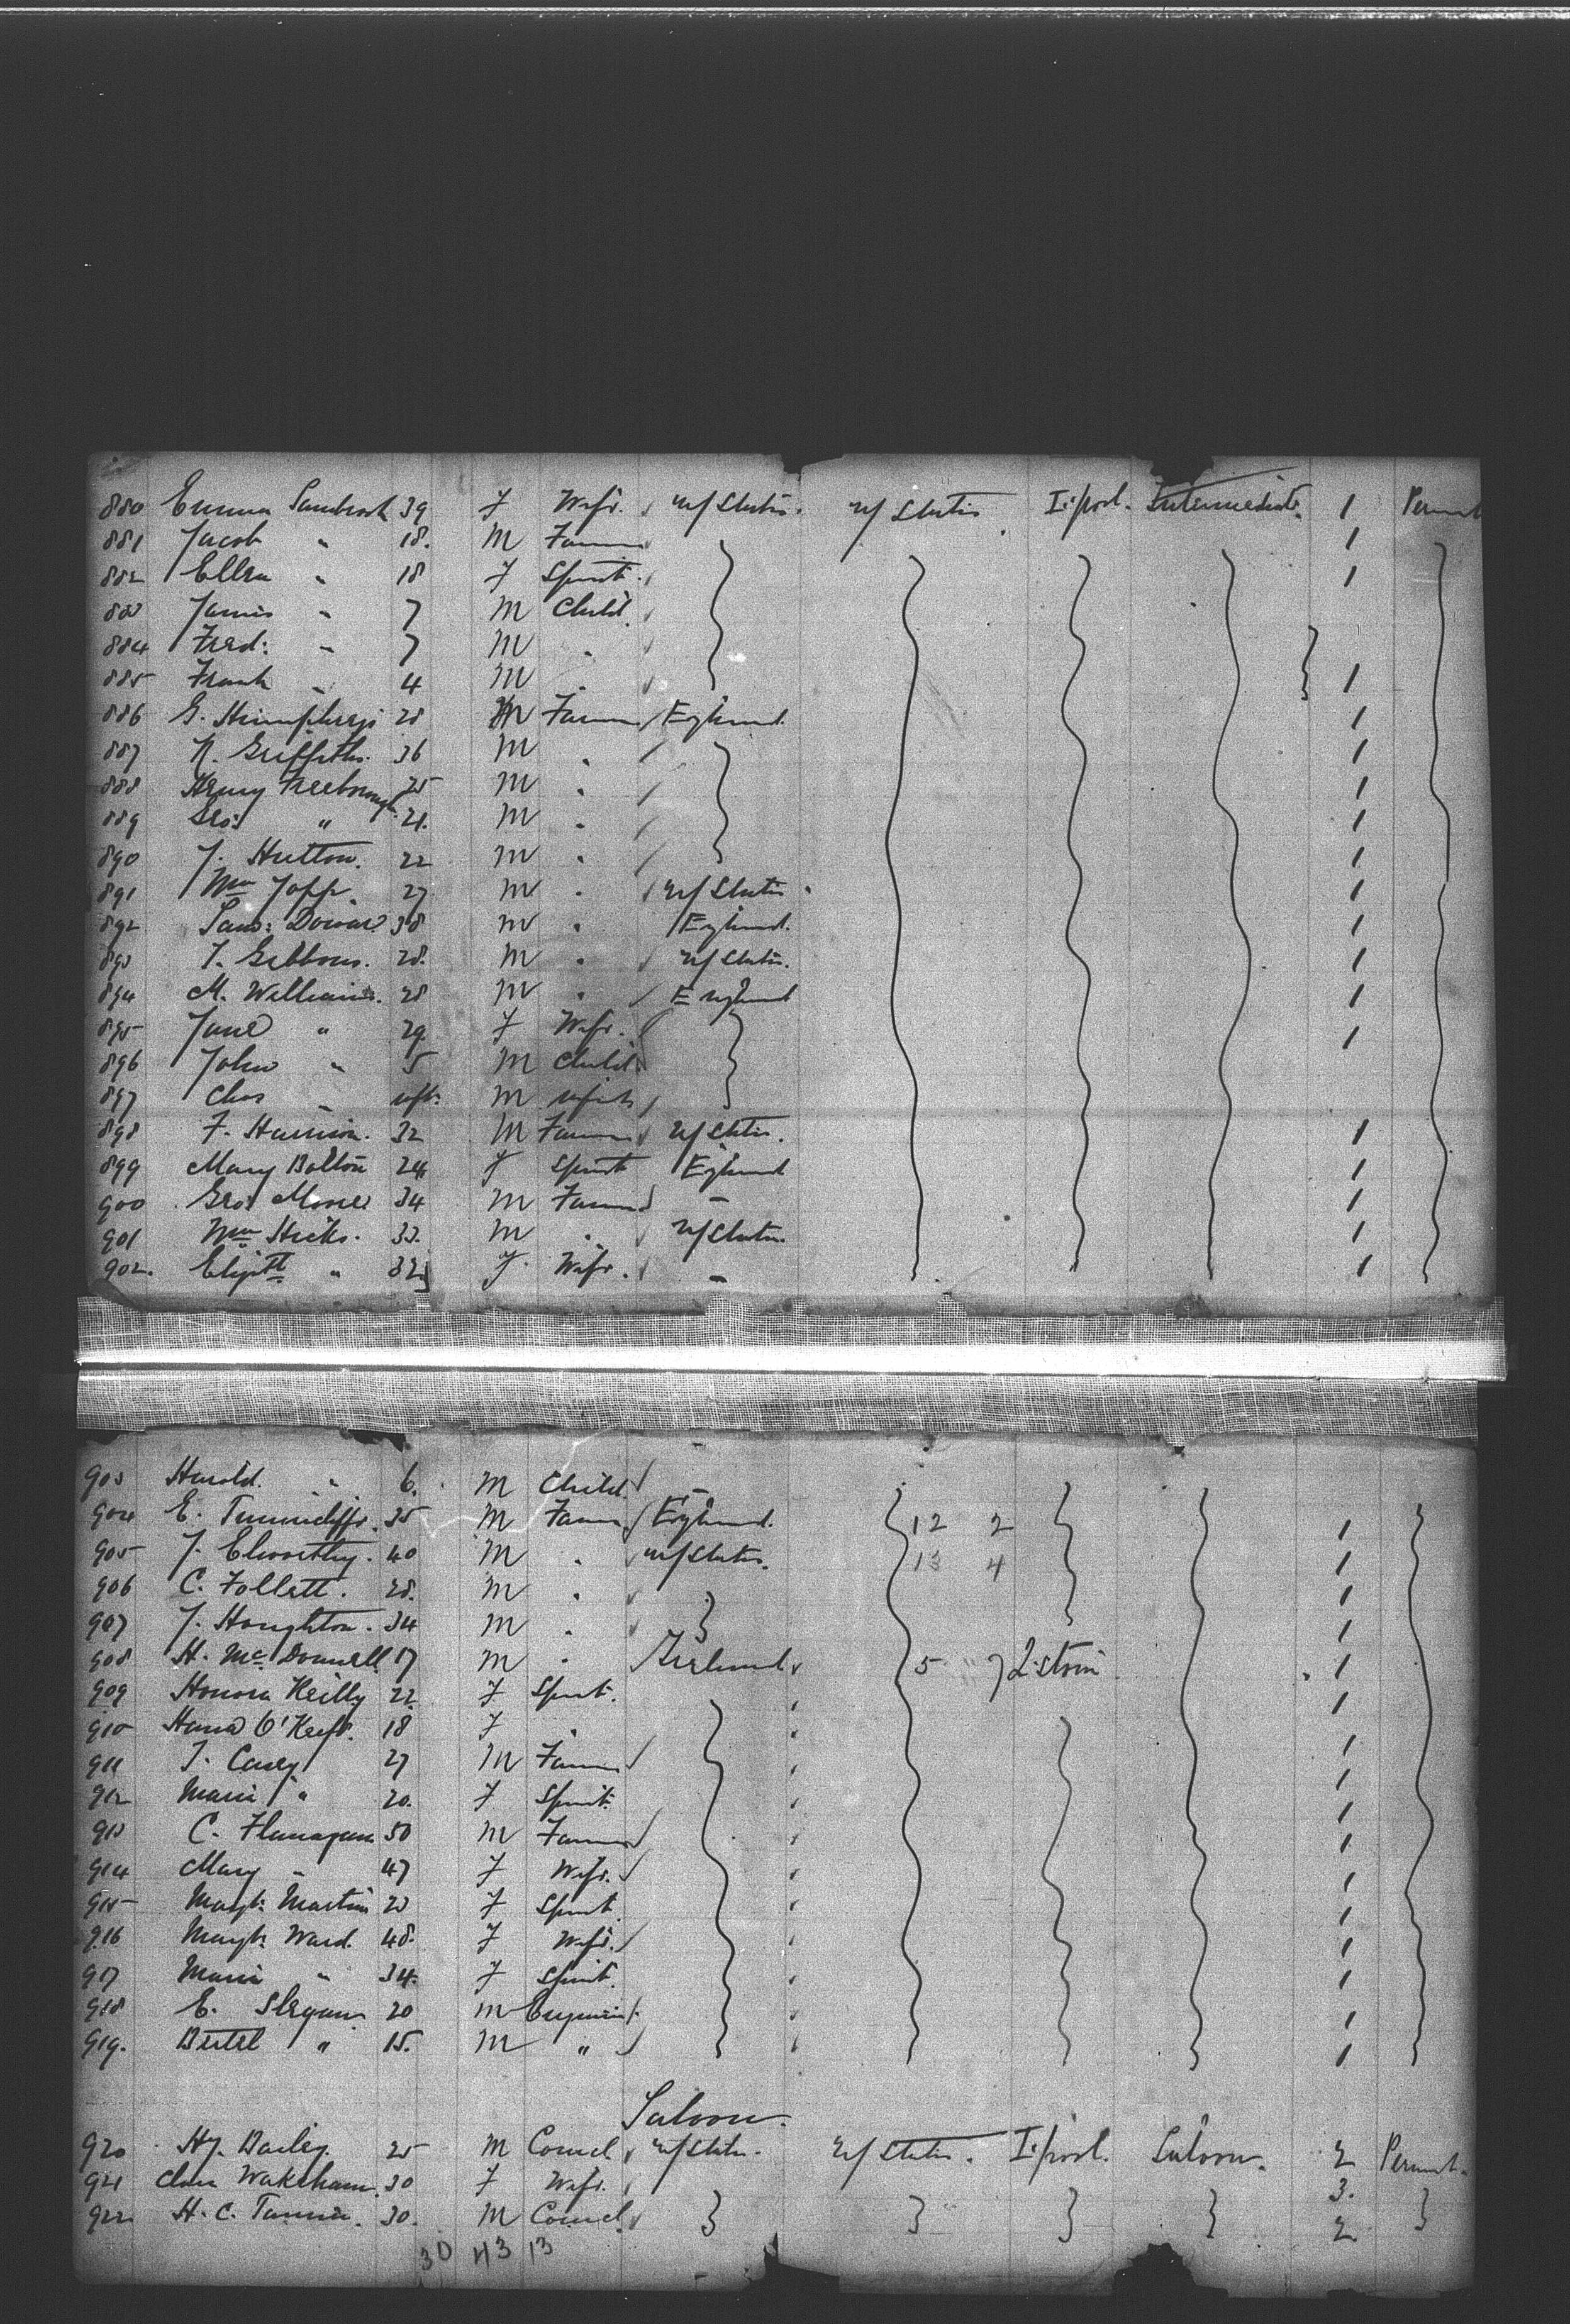 880 Emma Sambrook 39 F Wife U/States. U/States I:/pool. Intermediate. 1 Permt
881 Jacob " 18. M Farmer 1
882 Ellen " 18 F Spinst. 1
883 James " 7 M Child
884 Fred: " 7 M "
885 Frank " 4 M " 1
886 G. Humphreys 28 M Farmer England. 1
887 N. Griffiths. 36 M " 1
888 Henry Freeborough 25 M " 1
889 Geo: " 21. M " 1
890 J. Hutton. 22 M " 1
891 Wm Topp. 27 M " U/States 1
892 Sam: 38 M " England. 1
893 T. Gibbons. 28. M " U/States. 1
894 M. Williams. 28 M " England 1
895 Jane " 29 F Wife. 1
896 John " 5 M Child
897 Chas " inft. M infnt
898 F. Harrison. 32 M Farmer U/States. 1
899 Mary Bolton 24 F Spinst England 1
900 Geo: Moore 34 M Farmer " 1
901 Wm Hicks. 33. M " U/States. 1
902. Elizth " 32 F. Wife. " 1
903 Harold. " 6. M Child. "
904 E. Tunnicliffe. 35 M Farmer England. 12 2 1
905 J. Elworthy. 40 M " U/States. 13 4 1
906 C. Follett. 28. M " 1
907 J. Houghton. 34 M " 1
908 H. McDonnell 17 M " Ireland 5 7 Q:stown 1
909 Honora Reilly 22 F Spinst. 1
910 Hana O'Keefe. 18 F " 1
911 T. Casey 27 M Farmer 1
912 Maria " 20. F Spinst. 1
913 C. Flanagan 50 M Farmer 1
914 Mary " 47 F Wife. 1
915 Margt: Martin 23 F Spinst. 1
916 Margt: Ward. 48. F Wife. 1
917 Maria " 34. F Spinst. 1
918 E. 20 M 1
919. " 15. M " 1
Saloon.
920 Hy. Bailey. 25 M Comcl U/States. U/States. I:/pool. Saloon. 2 Permt.
921 Clara Wakeham. 30 F Wife. 3.
922 H. C. Tanner. 30. M Comcl. 2
30 43 13